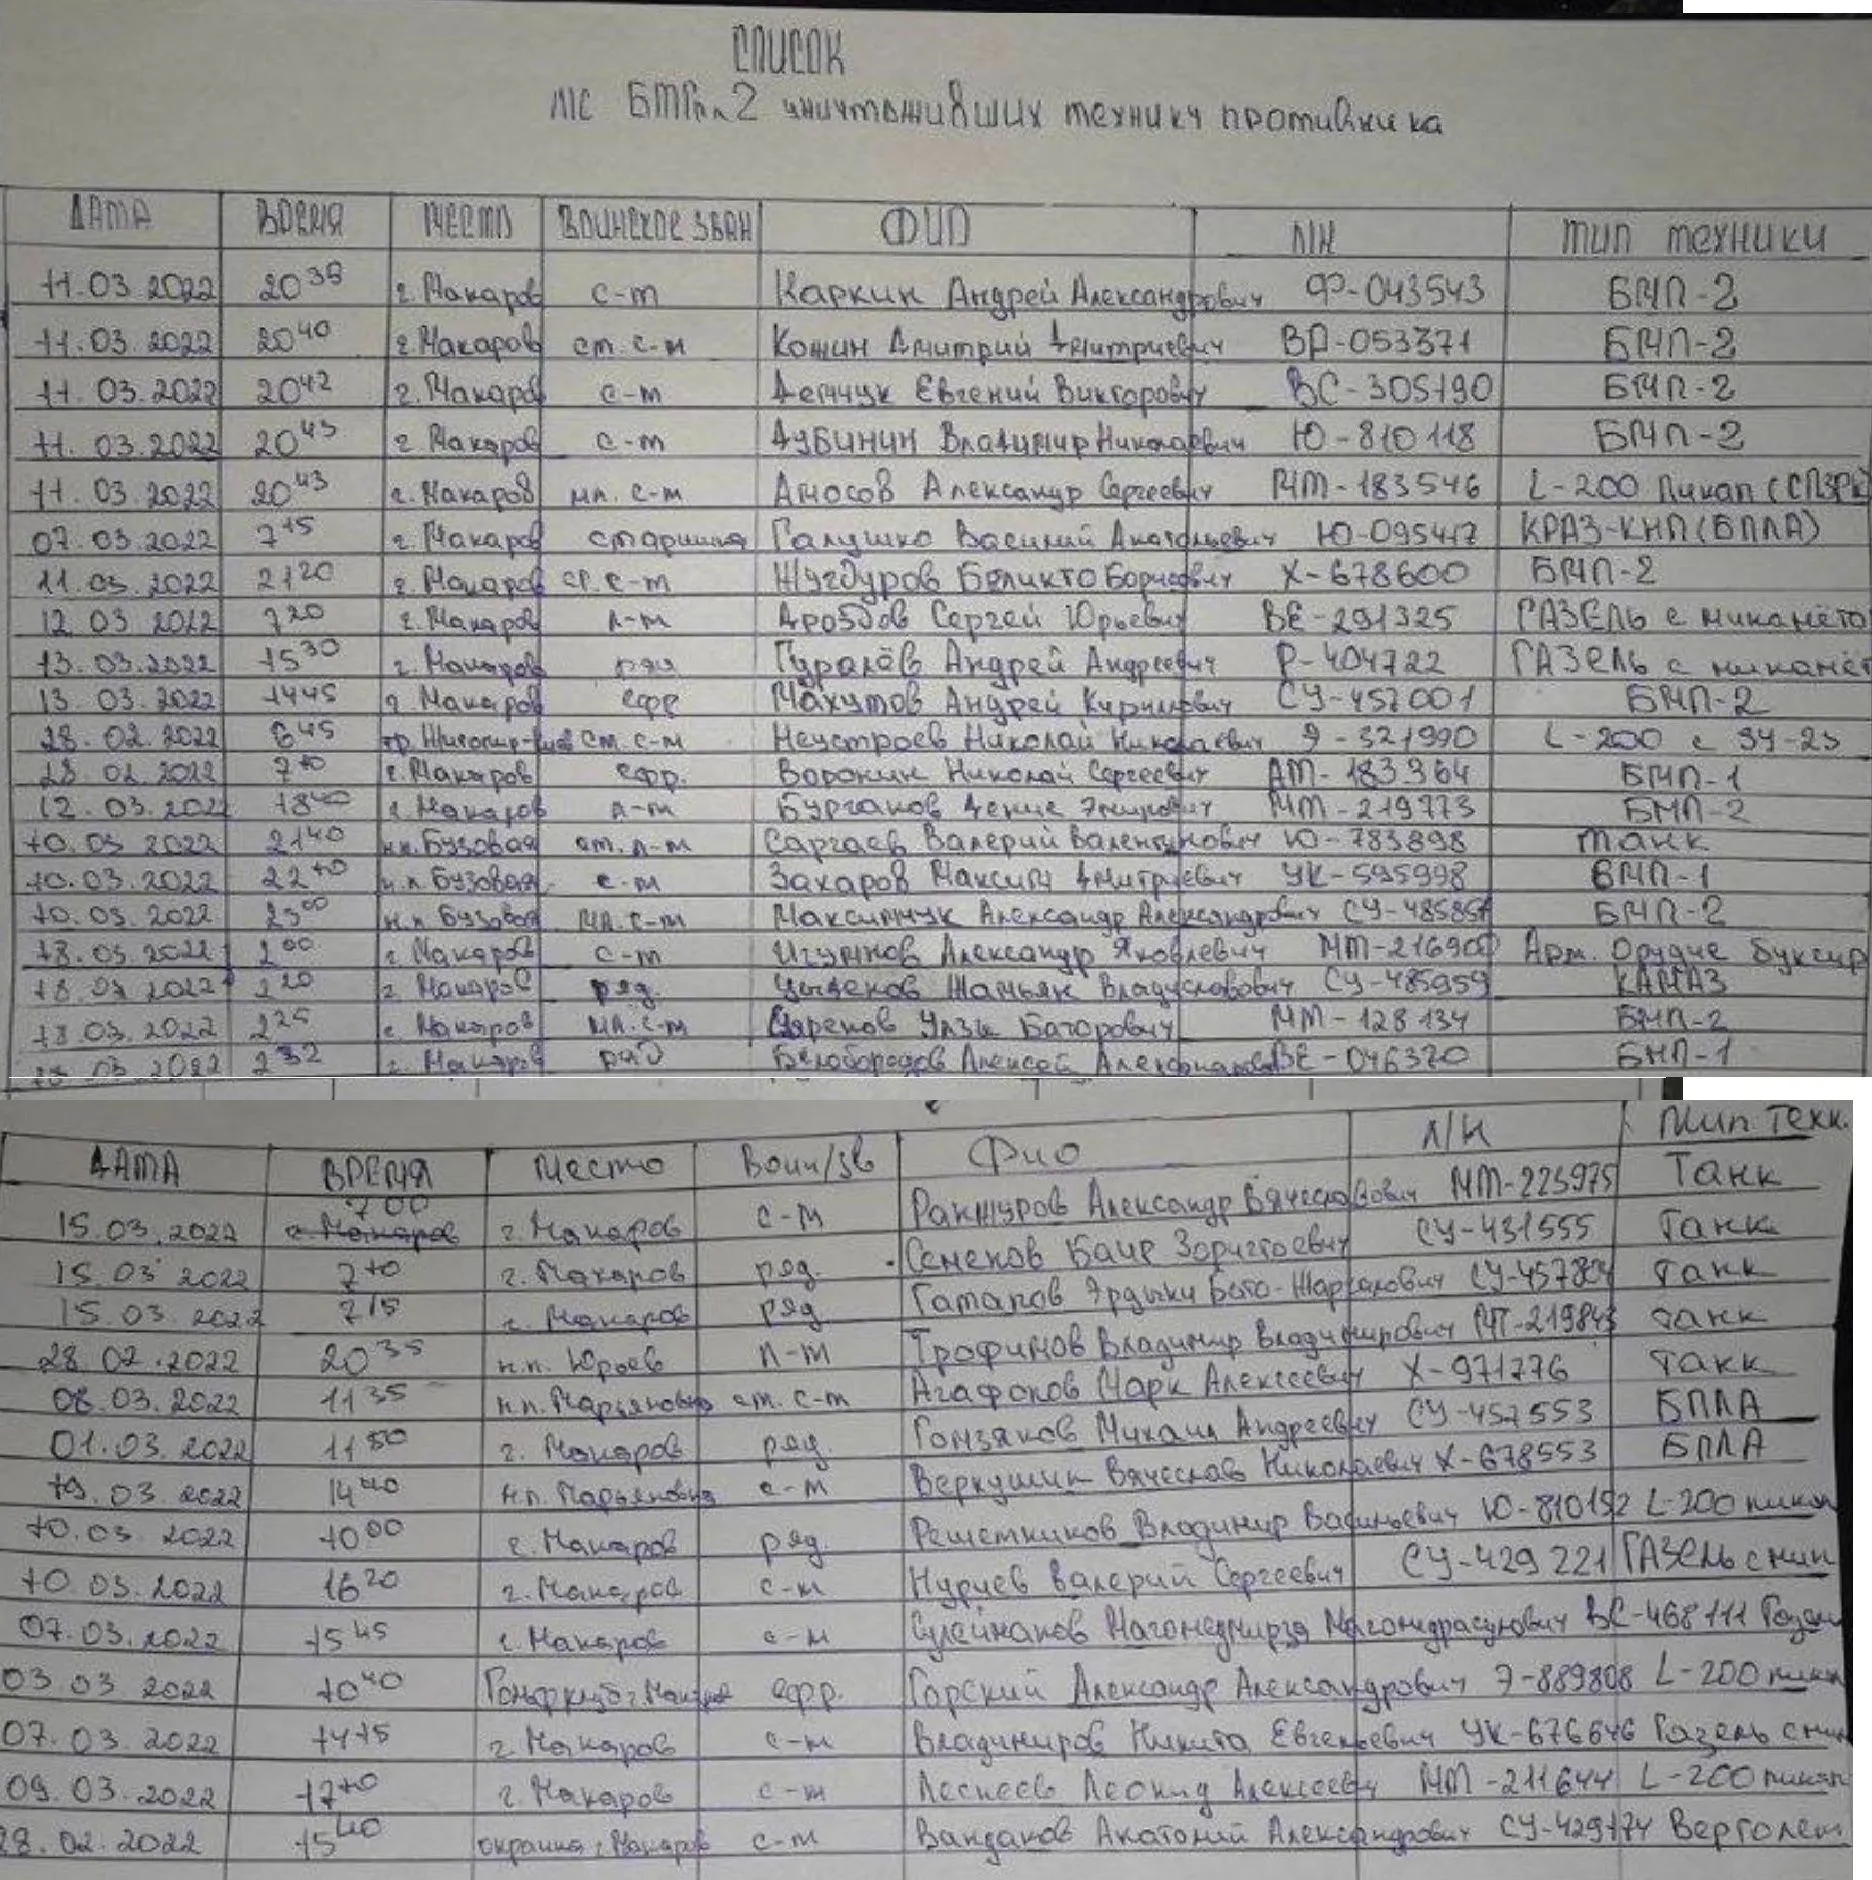 СПИСОК
Л/С БТГр 2 уничтоживших технику противника
ДАТА ВРЕМЯ МЕСТО ВОИНСКОЕ ЗВАН ФИО Л/Н ТИП ТЕХНИКИ
11.03 2022 20 38 г. Макаров с-т Каркин Андрей Александрович Ф-043543 БМП-2
11.03.2022 20 40 г. Макаров ст. с-н Кожин Дмитрий Дмитриевич ВР-053371 БМП-2
11.03.2022 20 42 г. Макаров с-т Демчук Евгений Викторович ВС-305190 БМП-2
11.03.2022 20 43 г. Макаров с-т Дубинин Владимир Николаевич Ю-810118 БМП-2
11.03.2022 20 43 г. Макаров мл. с-т Амосов Александр Сергеевич МТ-183546 L-200 Пикап
07.03.2022 7 15 г. Макаров старшина Галушко Василий Анатольевич Ю-095417 КРАЗ-КНП (БПЛА)
11.03.2022 21 20 г. Макаров с-т Жугдуров Беликто Борисович Х-678600 БМП-2
12.03 2022 7 20 г. Макаров л-т Дроздов Сергей Юрьевич ВЕ-291325 ГАЗЕЛЬ с
13.03.2022 15 30 г. Макаров ряд Гуралёв Андрей Андреевич Р-404722 ГАЗЕЛЬ с
13.03 2022 14 45 г. Макаров ефр Махутов Андрей Кириллович СУ-457001 БМП-2
28.02.2022 6 45 ст. с-н Неустроев Николай Николаевич Э-321990 L-200 с ЗУ-23
28.02 2022 7 10 г. Макаров ефр. Воронин Николай Сергеевич АМ-183364 БМП-1
12.03.2022 18 40 г. Макаров л-т Бурганов Денис МТ-219773 БМП-2
10.03 2022 21 40 н.п. Бузовая ст. л-т Саргаев Валерий Валентинович Ю-783898 Танк
10.03.2022 22 10 н.п. Бузовая с-т Захаров Максим Дмитриевич УК-595998 БМП-1
10.03.2022 23 00 н.п. Бузовая мл. с-т Максимчук Александр Александрович БМП-2
18.03.2022 2 00 г. Макаров с-т Игумнов Александр Яковлевич Арт. Орудие буксир
18.03 2022 2 20 г. Макаров ряд. Цыденов Жамьян Владиславович СУ-485959 КАМАЗ
18.03.2022 2 25 г. Макаров мл. с-т Баторович МТ-128134 БМП-2
18.03 2022 2 32 г. Макаров ряд Белобородов Алексей Александрович ВЕ-046320 БМП-1
ДАТА ВРЕМЯ Место Воин/зв Фио Л/Н Тип Техн.
15.03.2022 7 00 г. Макаров с-т Ракшуров Александр Вячеславович МТ-223975 Танк
15.03 2022 7 10 г. Макаров ряд. Семенов Баир Зоригтоевич СУ-431555 Танк
15.03.2022 7 15 г. Макаров ряд Гатапов Эрдыни Бато-Жаргалович СУ-457804 Танк
28.02.2022 20 35 н.п. Юрьев л-т Трофимов Владимир Владимирович танк
08.03.2022 11 35 н.п. Марьяновка ст. с-т Агафонов Марк Алексеевич Х-971776 танк
01.03.2022 11 50 г. Макаров ряд. Гомзяков Михаил Андреевич СУ-457553 БПЛА
19.03.2022 14 40 н.п. Марьяновка с-т Веркушин Вячеслав Николаевич Х-678553 БПЛА
10.03.2022 10 00 г. Макаров ряд. Решетников Владимир Васильевич Ю-810192 L-200 пикап
10.03.2022 16 20 г. Макаров с-т Нуриев Валерий Сергеевич СУ-429221 ГАЗЕЛЬ с
07.03.2022 15 45 г. Макаров с-н Сулейманов Магомедмирза Магомедрасулович ВС-468111 Газель
03 03 2022 10 40 Гольфклуб г. Макаров ефр. Горский Александр Александрович Э-889808 L-200 пикап
07.03 2022 14 15 г. Макаров с-н Владимиров Никита Евгеньевич УК-676646 Газель с
09.03.2022 17 10 г. Макаров с-т Леонид Алексеевич МТ-211644 L-200 пикап
28.02.2022 15 40 окраина г. Макаров с-т Вандаков Анатолий Александрович СУ-429174 Вертолет